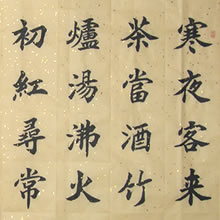 寒夜客来
茶當酒竹
爐湯沸火
初紅尋常